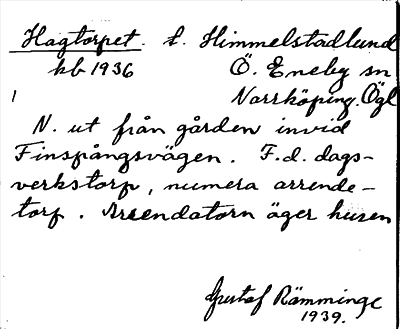 Hagtorpet. t. Himmelstadlund
kb 1936 Ö. Eneby sn
1 Norrköping. Ögl
N. ut från gården invid
Finspångsvägen. F.d. dags-
verkstorp, numera arrende-
torp. Arrendatorn äger husen
Gustaf Rämminge
1939.